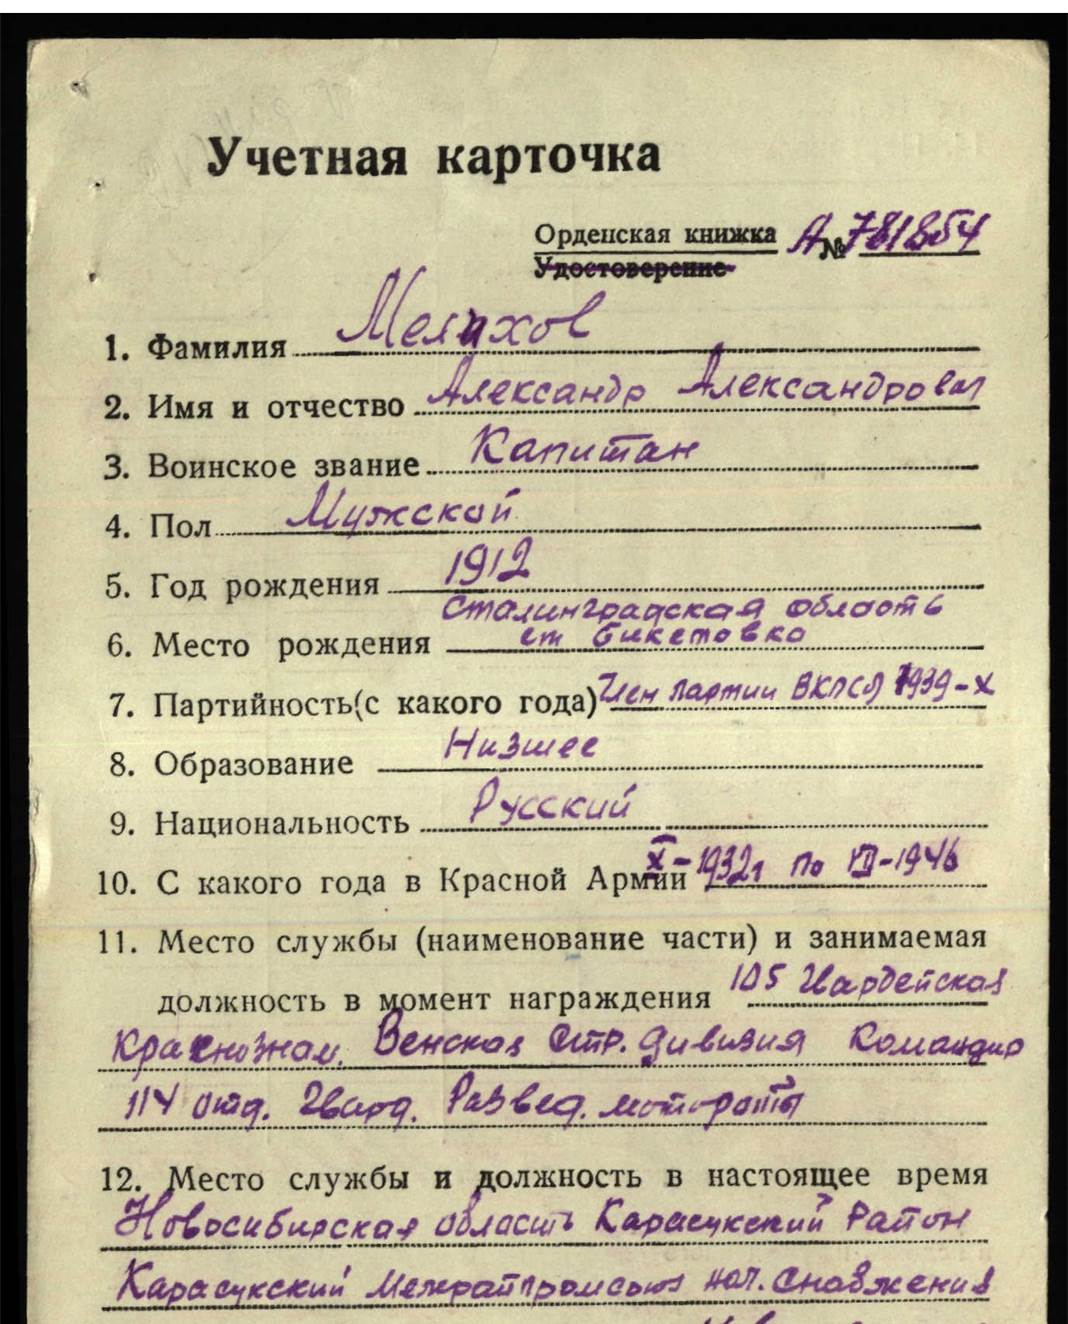 Учетная карточка
Орденская книжка А № 781854
Удостоверение
1. Фамилия Мелихов
2. Имя и отчество Александр Александрович
3. Воинское звание Капитан
4. Пол Мужской
5. Год рождения 1912
Сталинградская область
6. Место рождения ст Бикетовка
7. Партийность (с какого года) Член партии ВКП(б) 1939-X
8. Образование Низшее
9. Национальность Русский
10. С какого года в Красной Армии X-1932г по VII-1946
11. Место службы (наименование части) и занимаемая
должность в момент награждения 105 Гвардейская
Краснознам. Венская Стр. дивизия Командир
114 отд. Гвард. Развед. моторота
12. Место службы и должность в настоящее время
Новосибирская область Карасукский Район
Карасукский Межрайпромсоюз нач. Снабжения